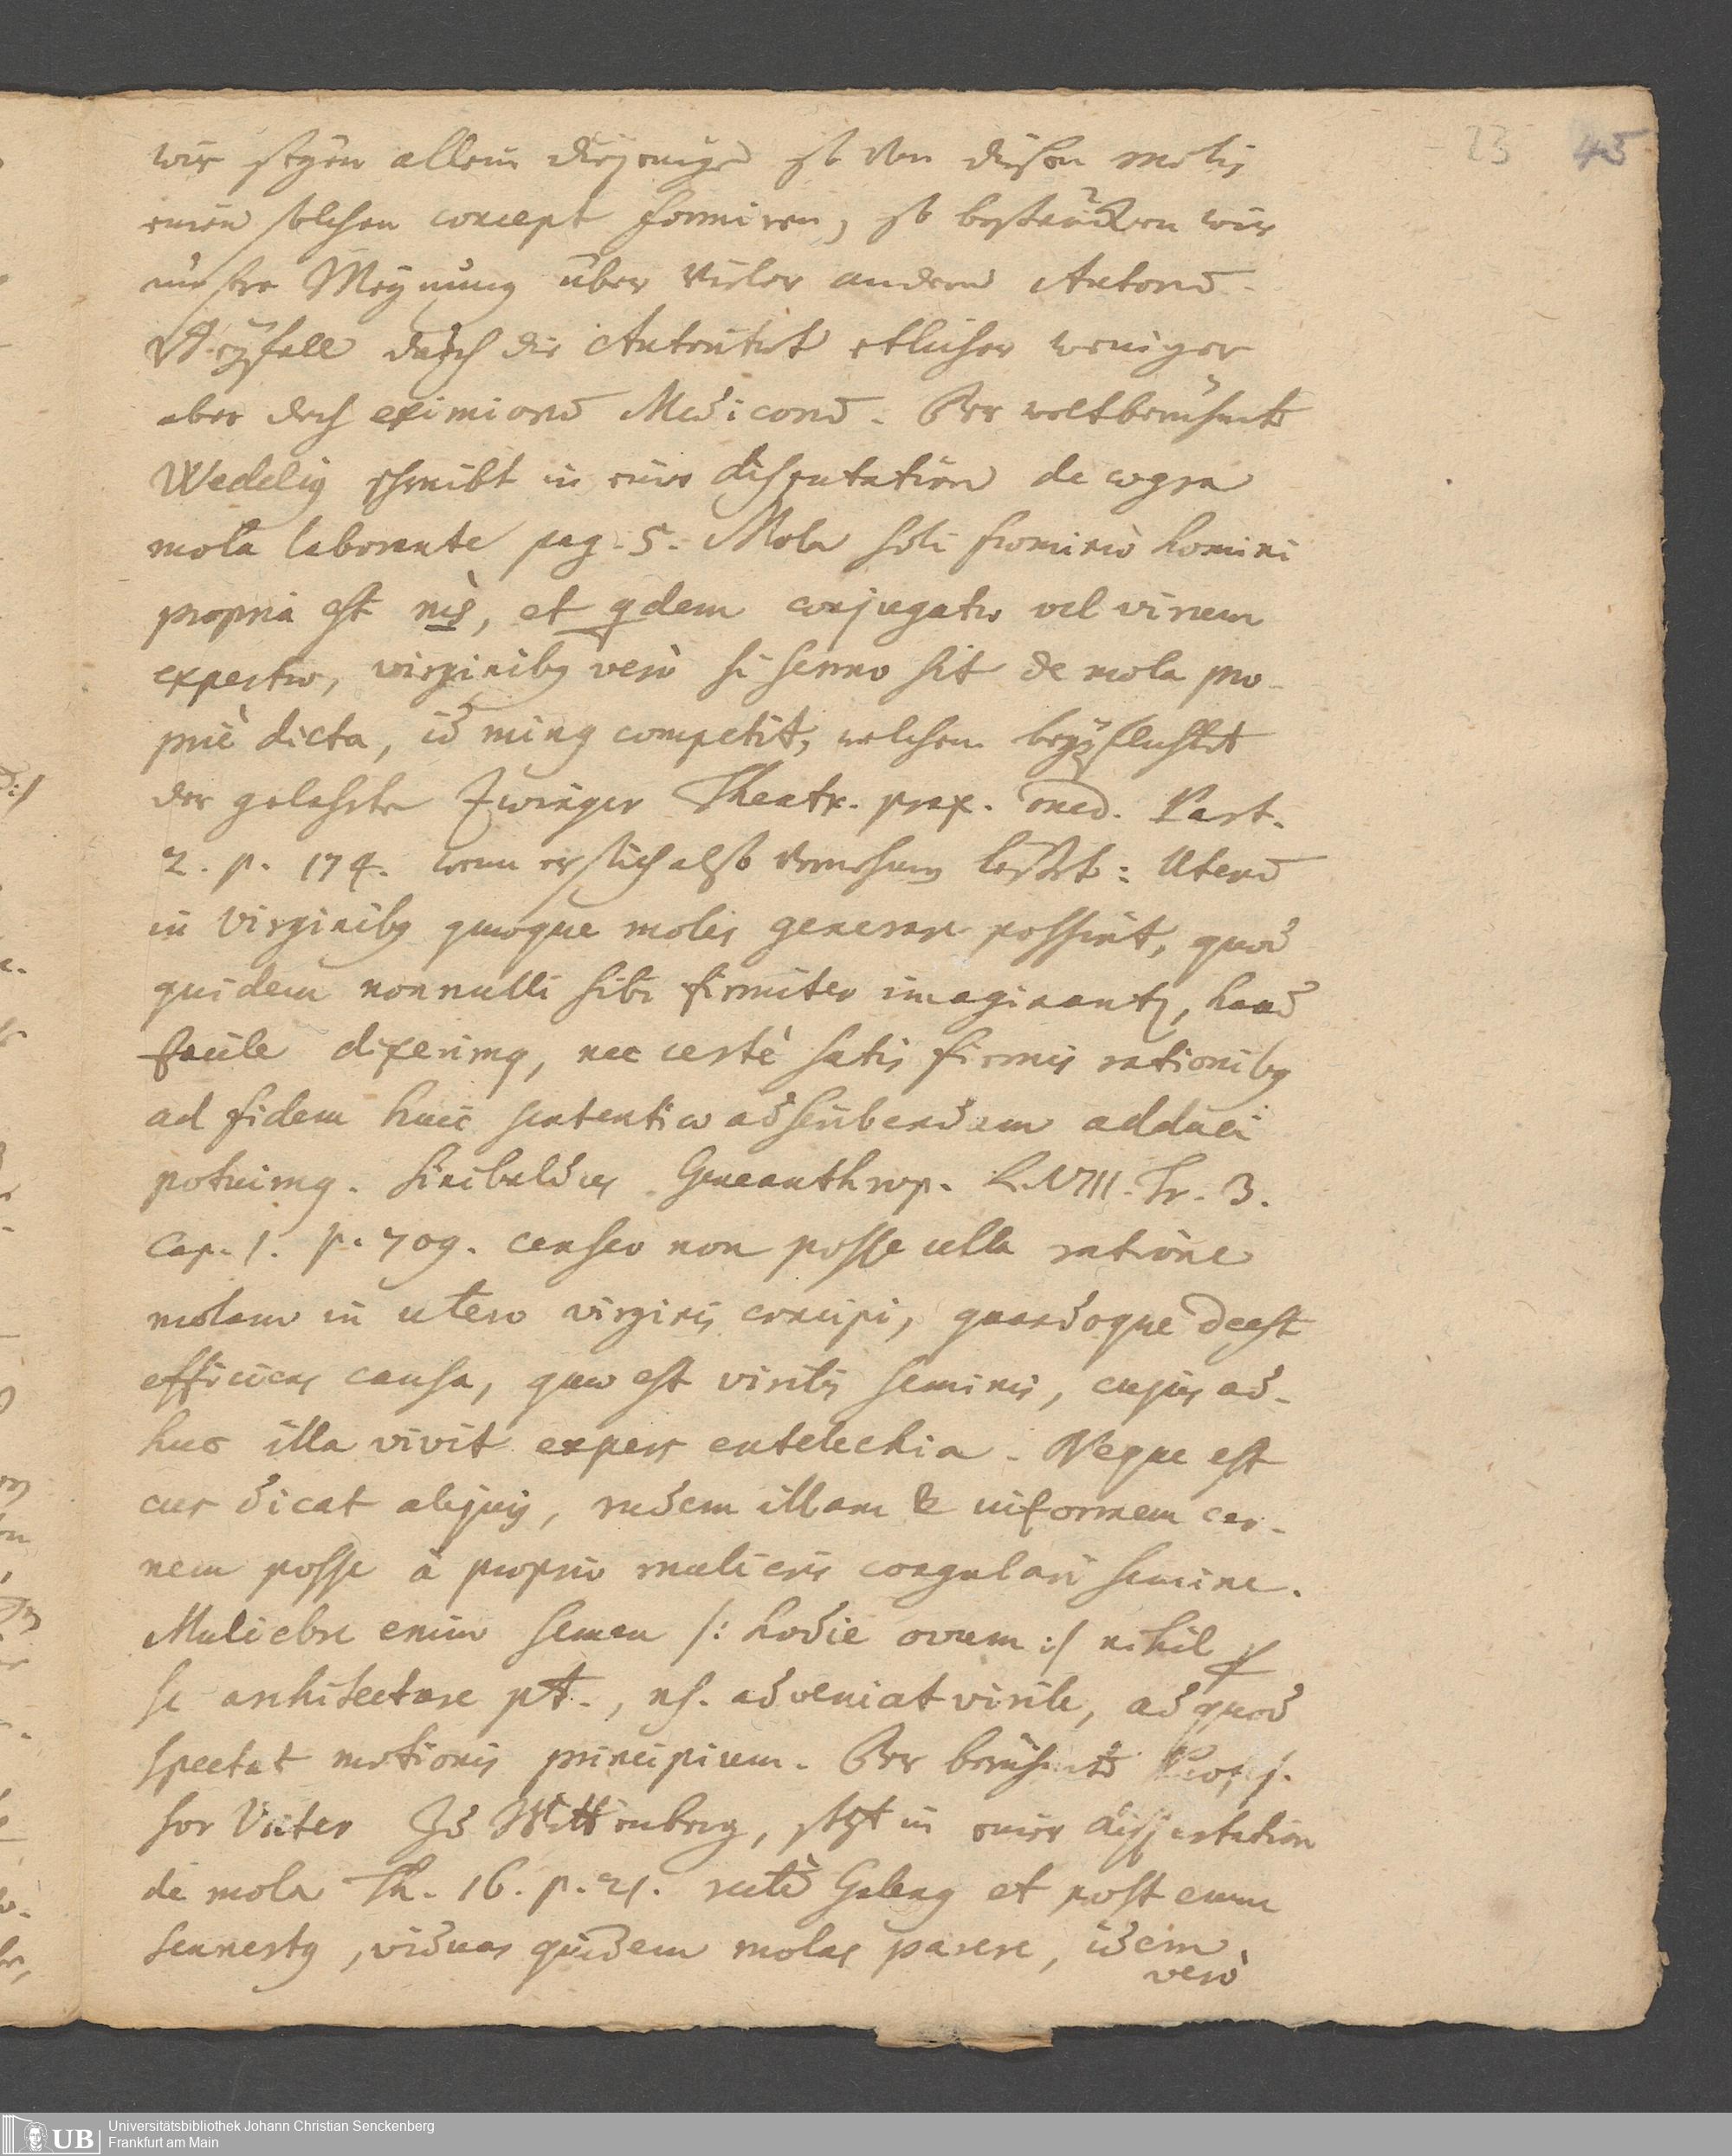 23 45
wir sezen allein diejenige so von diesen molis
einen solchen concept formiren, so bestärcken wir
unsere Meynung über vieler andern Autorum
Beyfall durch die Autoritæt etlicher weniger
aber doch eximiorum Medicorum. Der weltberühmte
Wedelius schreibt in einer disputation de ægra
mola laborante pag. 5. Mola soli fœmineo homini
propria est , et qdem conjugatæ vel virum
expertæ, virginibus verò si sermo sit de mola pro-
priè dicta, id minus competit, welchem beypflichtet
der gelehrte Zwinger Theatr. prax. med. Part.
2. p. 174. wenn er sich also vernehmen lässet: Uterum
in Virginibus quoque moles generare possint, quod
quidem nonnulli sibi firmiter imaginantur, haud
facile dixerimus, nec certè satis firmis rationibus
ad fidem huic sententiæ adscribendam adduci
potuimus. Sinibaldus Geneanthrop. L. VIII. Tr. 3.
Cap. 1. p. 709. censeo non posse ulla ratione
molam in utero virginis concipi, quandoque deest
efficiens causa, quæ est virilis seminis, cujus ad-
huc illa vivit expers entelechia. Neque est
cur dicat aliquis, rudem illam & informem car-
nem posse à proprio mulieris coagulari semine.
Muliebre enim semen /: hodie ovum :/ nihil
se architectare pt., ns. adveniat virile, ad quod
spectat motionis principium. Der berühmte Profes-
sor Vater zu Wittenberg, sezt in einer dissertation
de mola Th. 16. p. 21. rectè Galenus et post eum
Sennertus, viduas quidem molas parere, idem
verò